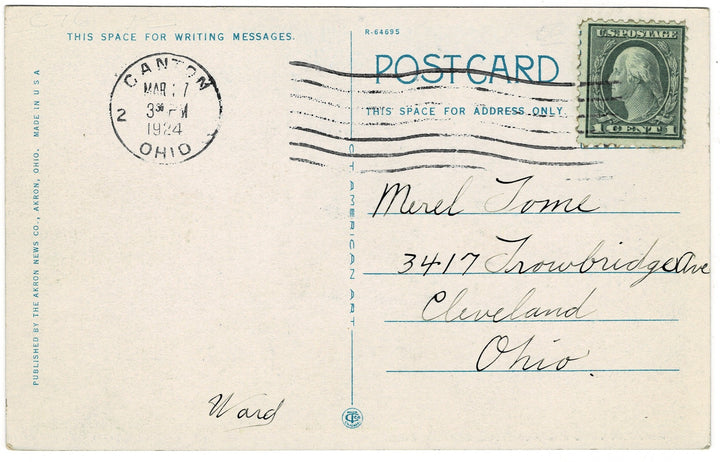 THIS SPACE FOR WRITING MESSAGES.
R-64695
POST CARD
THIS SPACE FOR ADDRESS ONLY.
U.S. POSTAGE
1 CENT 1
CANTON
MAR 7
2
3 30 PM
1924
OHIO
PUBLISHED BY THE AKRON NEWS CO., AKRON, OHIO. MADE IN U S A
CT AMERICAN ART
Merel Tome
3417 Trowbridge Ave
Cleveland
Ohio.
Ward